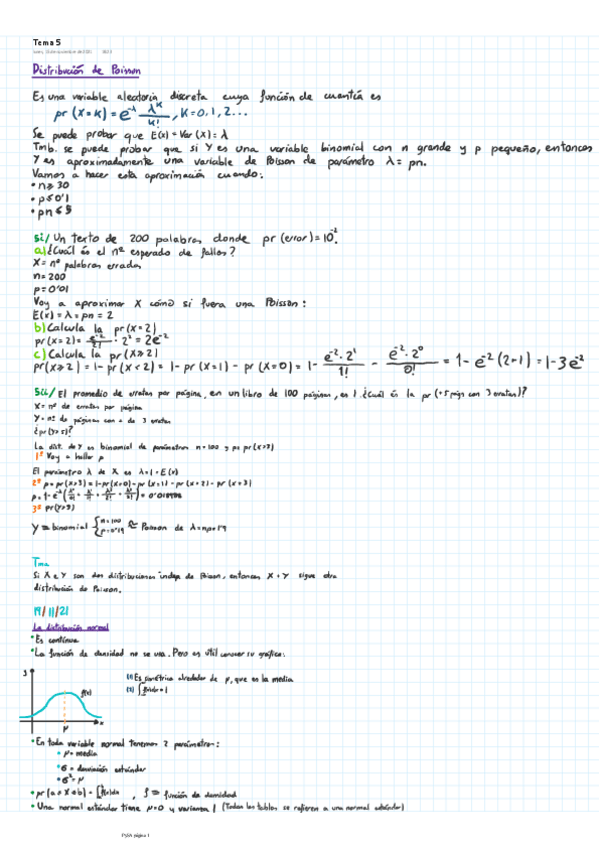 Tema 5
Distribución de Poisson
Es una variable aleatoria discreta cuya función de cuantía es
pr (X=K) = e^-λ λ^K/K! , K=0, 1, 2...
Se puede probar que E(X) = Var (X) = λ
Tmb. se puede probar que si Y es una variable binomial con n grande y p pequeño, entonces
Y es aproximadamente una variable de Poisson de parámetro λ = pn.
Vamos a hacer esta aproximación cuando:
• n≥30
• p≤0'1
• pn≤5
5i/ Un texto de 200 palabras donde pr (error) = 10^-2.
a) ¿Cuál és el nº esperado de fallos?
X = nº palabras erradas
n = 200
p = 0'01
Voy a aproximar X cómo si fuera una Poisson:
E(X) = λ = pn = 2
b) Calcula la pr(X=2)
pr(X=2) = e^-2/2! · 2² = 2e^-2
c) Calcula la pr(X≥2)
pr(X≥2) = 1- pr(X<2) = 1- pr(X=1) - pr(X=0) = 1- e^-2·2^1/1! - e^-2·2^0/0! = 1- e^-2 (2+1) = 1-3e^-2
5ii/ El promedio de erratas por página, en un libro de 100 páginas, es 1. ¿Cuál és la pr (+5 pags con 3 erratas)?
X = nº de erratas por página
Y = nº de páginas con + de 3 erratas
¿pr(Y>5)?
La dist. de Y es binomial de parámetros n=100 y p= pr(X>3)
1º Voy a hallar p
El parámetro λ de X es λ=1=E(X)
2º p= pr(X>3) = 1-pr(X=0)-pr(X=1)-pr(X=2)-pr(X=3)
3º pr(Y>5)
Y = binomial { n=100 ≈ Poisson de λ=np=1'9
Tma
Si X e Y son dos distribuciones indep. de Poisson, entonces X+Y sigue otra
distribución de Poisson.
19/11/21
La distribución normal
• Es contínua
• La función de densidad no se usa. Pero es útil conocer su gráfica:
y
f(x)
x
μ
(1) Es simétrica alrededor de μ, que es la media
(2) ∫f(x)dx = 1
• En toda variable normal tenemos 2 parámetros:
• μ = media
• σ = desviación estándar
• pr(a≤X≤b) = ∫f(x)dx , f = función de densidad
• Una normal estándar tiene μ=0 y varianza 1 (Todas las tablas se refieren a una normal estándar)
PyEA página 1